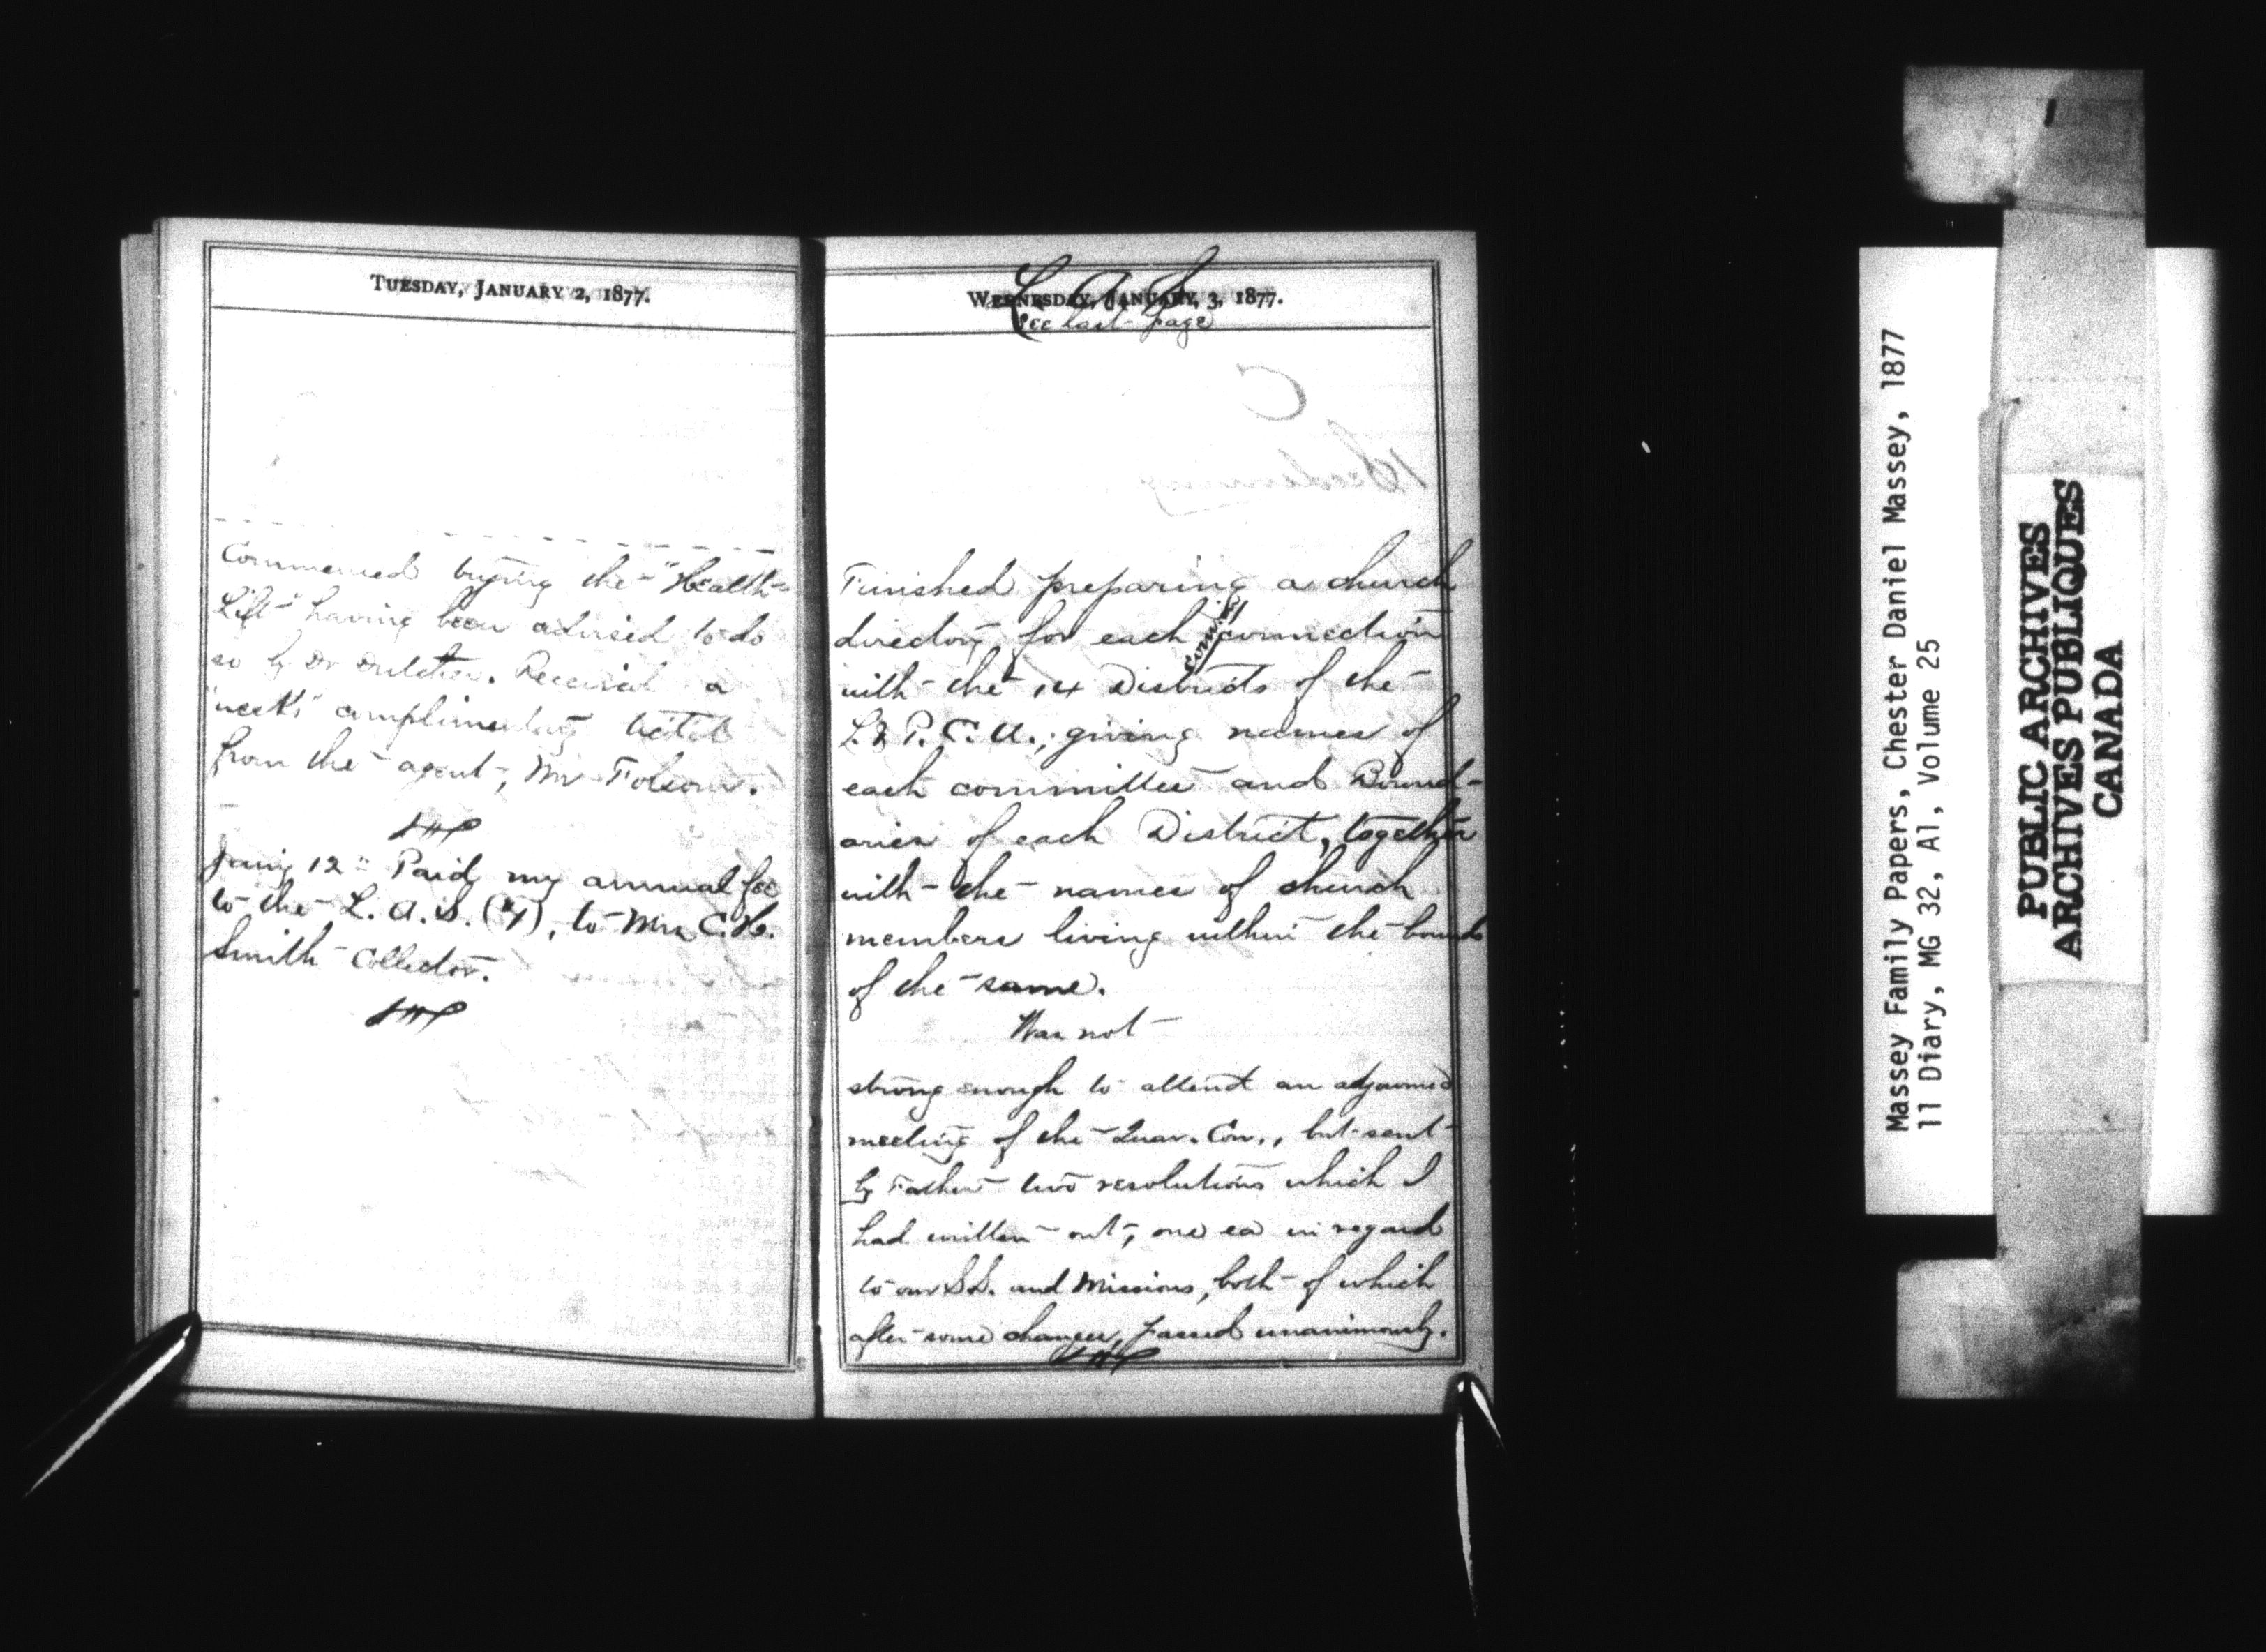 TUESDAY, JANUARY 2, 1877.
Commenced trying the "Health-
Lift" having been advised to do
so by Dr . Received a
"week's" complimentary ticket
from the agent, Mr Folsom.
Jan'y 12" Paid my annual fee
to the L. A. S. ($1), to Mrs C. H.
Smith Collector.
L. A. S.
WEDNESDAY, JANUARY 3, 1877.
See last page
Finished preparing a church
directory for each com. in connection
with the 14 Districts of the
L. & P. C. U.; giving names of
each committee and Bound-
aries of each District, together
with the names of church
members living within the bounds
of the same.
Was not
strong enough to attend an adjourned
meeting of the Quar. Con., but sent
by Father two resolutions which I
had written out, one ea in regard
to our S.S. and Missions, both of which
after some changes, passed unanimously.
Massey Family Papers, Chester Daniel Massey, 1877
11 Diary, MG 32, A1, Volume 25
PUBLIC ARCHIVES
ARCHIVES PUBLIQUES
CANADA